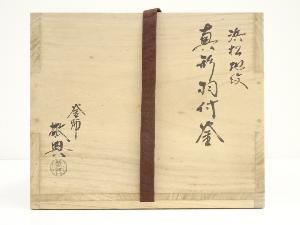 浜松地紋
真形羽付釜
釜師
敬典